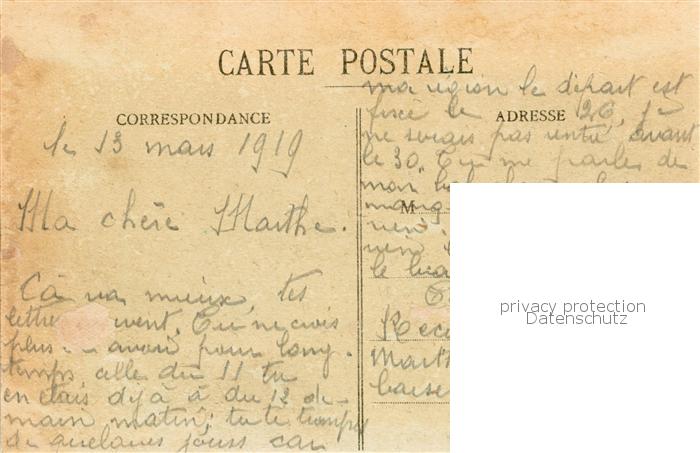 CARTE POSTALE
CORRESPONDANCE
le 13 mars 1919
Ma chère Marthe.
Cà va mieux, tes
lettre vent. Tu ne crois
plus avoir pour long.
temps, celle du 11 tu
en étais déjà à du 12 de-
main matin; tu te trompes
de quelques jours car
ma région le départ est
fixé le 26, je
ADRESSE
ne serais pas rentré avant
le 30. Tu me parles de
mon
M
rien
le
Marth
baise
privacy protection
Datenschutz